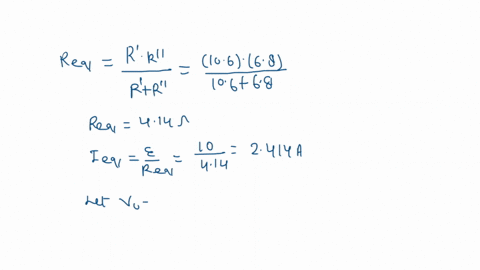 Req = R'·R'' / R'+R'' = (10.6)·(6.8) / 10.6+6.8
Req = 4.14 Ω
Ieq = ε / Req = 10 / 4.14 = 2.414 A
Let V₀ -